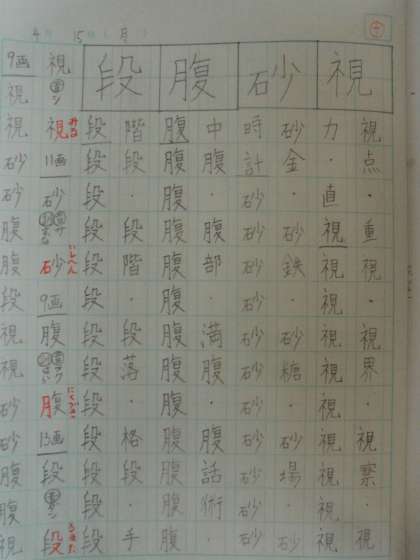 4月15日(月)
視
砂
腹
段
視点・重視・視界・視察・視
力・直視視視視視視視視視視
砂金・砂鉄・砂糖・砂場・砂
時計砂砂砂砂砂砂砂砂砂砂砂
中腹・腹部・満腹・腹話術・
腹腹腹腹腹腹腹腹腹腹腹腹腹
階段・段階・段落・格段・手
段段段段段段段段段段段段段
視 音シ 視 みる 11画 砂 砂 いしへん 9画 腹 腹 にくづき 13画 段 段 るまた
9画 視視砂砂腹腹段視視砂砂腹腹視